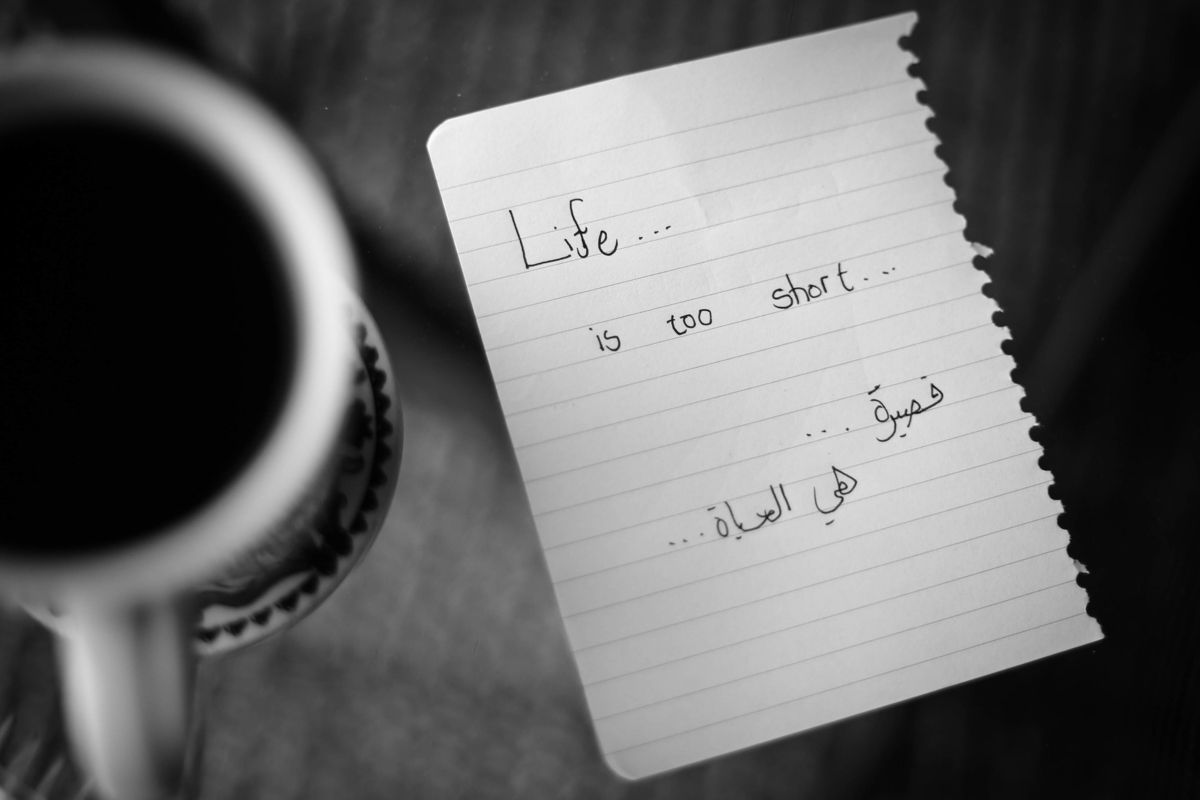 Life...
is too short...
قصيرة ...
هي الحياة...